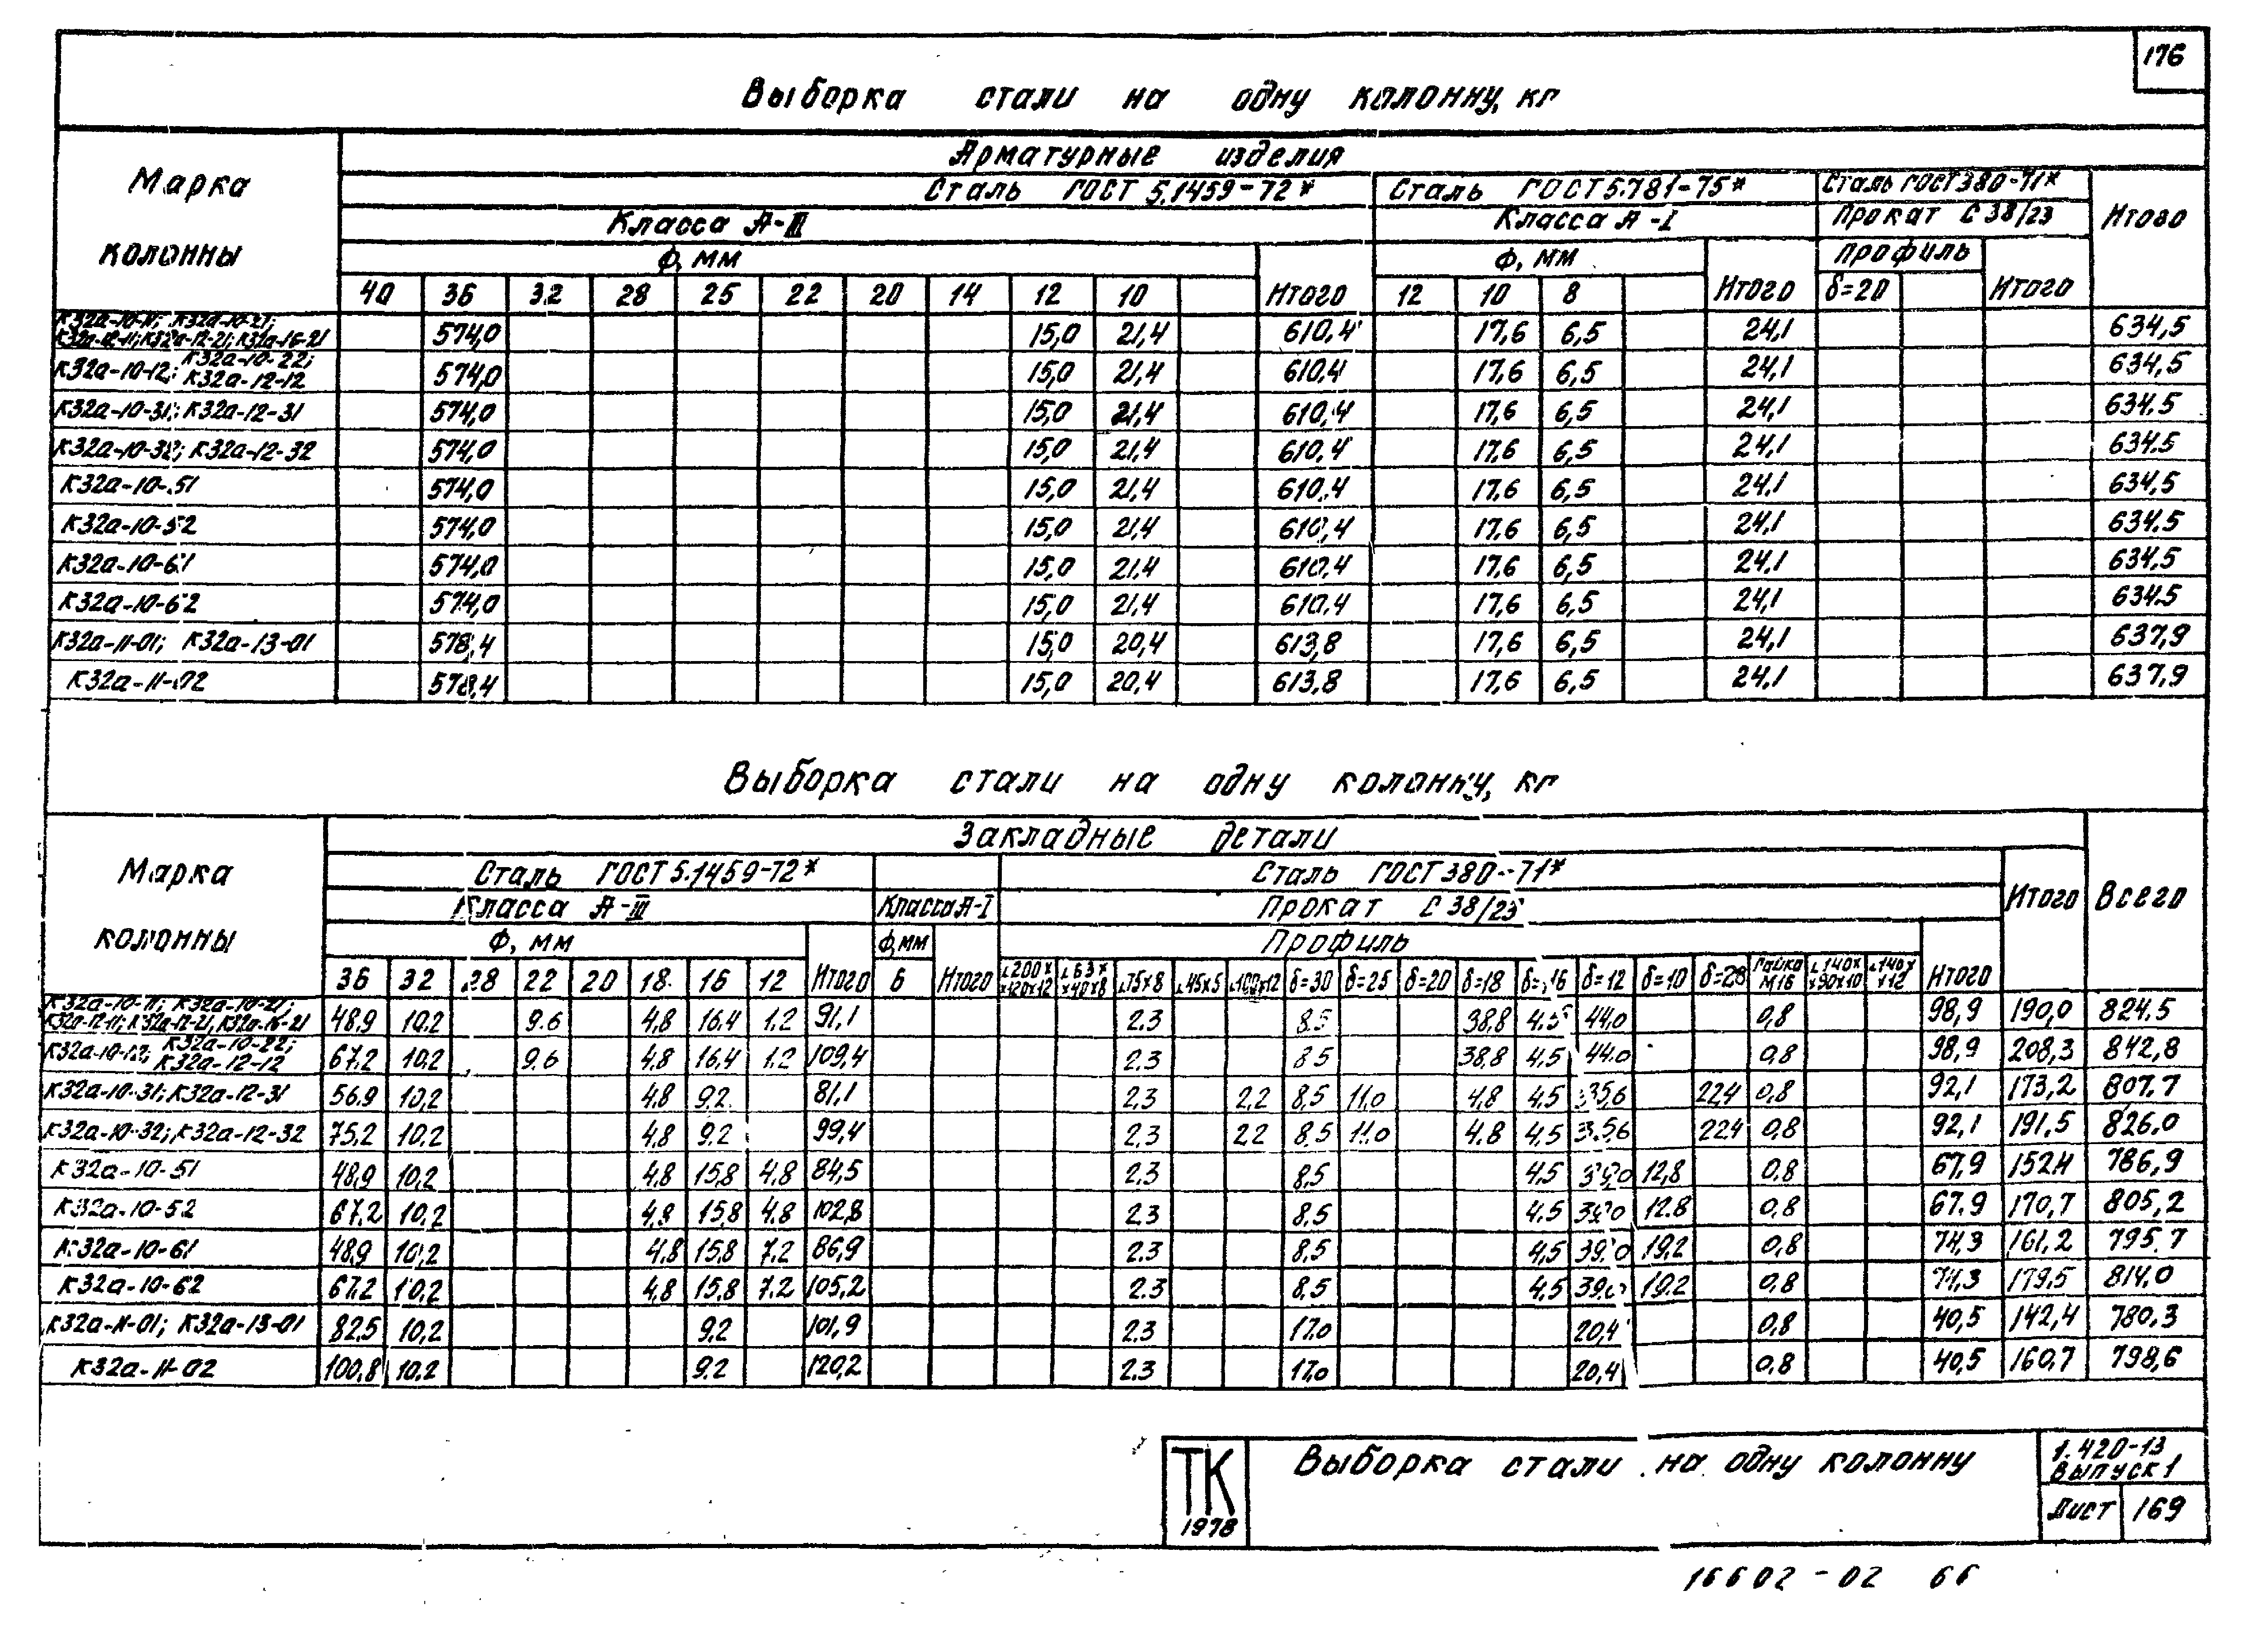 176
Выборка стали на одну колонну, кг
Марка колонны
Арматурные изделия
Сталь ГОСТ 5.1459-72* Сталь ГОСТ 5.781-75* Сталь ГОСТ 380-71*
Класса А-III Класса А-I Прокат С 38/23 Итого
Ф, мм Итого Ф, мм Итого Профиль Итого
40 36 32 28 25 22 20 14 12 10 12 10 8 δ=20
К32а-10-11; К32а-10-21;
К32а-12-11; К32а-12-21; К32а-16-21 574,0 15,0 21,4 610,4 17,6 6,5 24,1 634,5
К32а-10-12; К32а-10-22; К32а-12-12 574,0 15,0 21,4 610,4 17,6 6,5 24,1 634,5
К32а-10-31; К32а-12-31 574,0 15,0 21,4 610,4 17,6 6,5 24,1 634.5
К32а-10-32; К32а-12-32 574,0 15,0 21,4 610,4 17,6 6,5 24,1 634.5
К32а-10-51 574,0 15,0 21,4 610,4 17,6 6,5 24,1 634,5
К32а-10-52 574,0 15,0 21,4 610,4 17,6 6,5 24,1 634.5
К32а-10-61 574,0 15,0 21,4 610,4 17,6 6,5 24,1 634,5
К32а-10-62 574,0 15,0 21,4 610,4 17,6 6,5 24,1 634.5
К32а-11-01; К32а-13-01 578,4 15,0 20,4 613,8 17,6 6,5 24,1 637,9
К32а-11-02 578,4 15,0 20,4 613,8 17,6 6,5 24,1 637,9
Выборка стали на одну колонну, кг
Марка колонны
Закладные детали
Сталь ГОСТ 5.1459-72* Сталь ГОСТ 380-71* Итого Всего
Класса А-III Класса А-I Прокат С 38/23
Ф, мм Ф, мм Профиль
36 32 28 22 20 18 16 12 Итого 6 Итого ∟200××120×12 ∟63××40×8 ∟75×8 ∟45×5 ∟100×12 δ=30 δ=25 δ=20 δ=18 δ=16 δ=12 δ=10 δ=28 Гайка М16 ∟140××90×10 ∟140××12 Итого
К32а-10-11; К32а-10-21;
К32а-12-11; К32а-12-21; К32а-16-21 48,9 10.2 9.6 4,8 16.4 1.2 91,1 2.3 8.5 38,8 4.5 44.0 0,8 98,9 190,0 824.5
К32а-10-12; К32а-10-22; К32а-12-12 67.2 10.2 9.6 4.8 16,4 1.2 109,4 2.3 8.5 38.8 4,5 44.0 0,8 98,9 208,3 842,8
К32а-10-31; К32а-12-31 56.9 10,2 4.8 9.2 81,1 2.3 2.2 8,5 11.0 4.8 4.5 35.6 22.4 0,8 92,1 173,2 807.7
К32а-10-32; К32а-12-32 75.2 10.2 4,8 9.2 99,4 2.3 2.2 8.5 11.0 4.8 4,5 35.6 22.4 0,8 92,1 191,5 826.0
К32а-10-51 48,9 10,2 4.8 15,8 4.8 84,5 2.3 8,5 4,5 39,0 12,8 0,8 67,9 152.4 786,9
К32а-10-52 67.2 10,2 4,8 15,8 4.8 102,8 2.3 8,5 4.5 39,0 12.8 0,8 67.9 170,7 805,2
К32а-10-61 48,9 10,2 4,8 15,8 7.2 86,9 2.3 8,5 4,5 39,0 19,2 0,8 74,3 161,2 795.7
К32а-10-62 67.2 10,2 4,8 15,8 7.2 105,2 2.3 8,5 4.5 39,0 19.2 0,8 74,3 179.5 814.0
К32а-11-01; К32а-13-01 82,5 10,2 9.2 101,9 2.3 17.0 20,4 0,8 40,5 142,4 780,3
К32а-11-02 100,8 10.2 9.2 120,2 2.3 17,0 20,4 0,8 40,5 160,7 798,6
ТК
1978
Выборка стали на одну колонну
1.420-13
Выпуск 1
Лист 169
16602-02 66